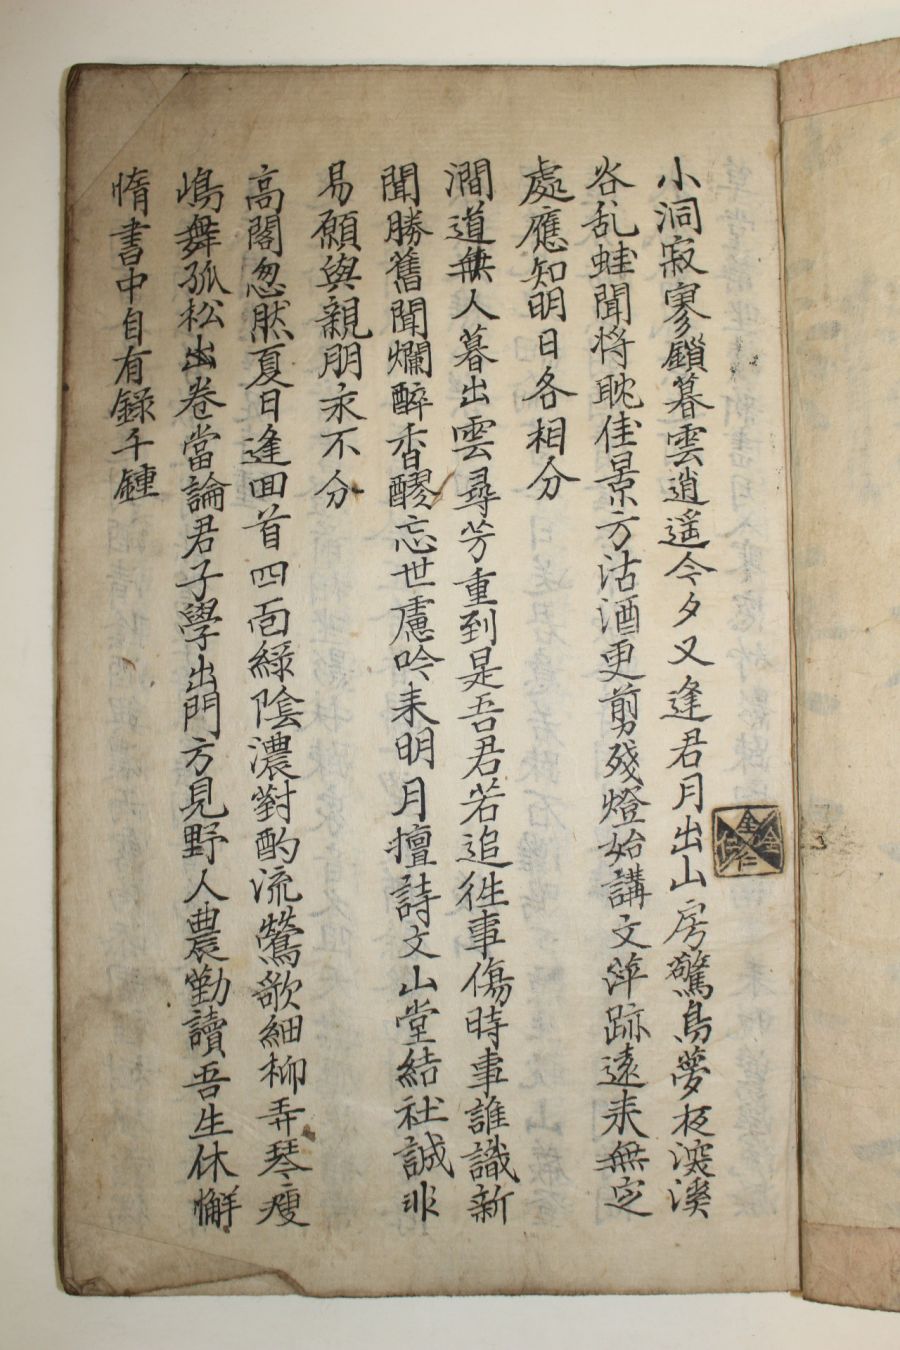 小洞寂寥鎖暮雲逍遥今夕又逢君月出山房驚鳥夢夜深溪
谷乱蛙聞将耽佳景方沽酒更剪殘燈始講文萍跡遠来無定
處應知明日各相分
澗道無人暮出雲尋芳重到是吾君若追徃事傷時事誰識新
聞勝舊聞爛醉香醪忘世慮吟来明月擅詩文山堂結社誠非
易願與親朋永不分
高閣忽然夏日逢回首四面緑陰濃對酌流鶯歌細柳弄琴瘦
舞孤松出卷當論君子學出門方見野人農勤讀吾生休懈
惰書中自有錄千鍾